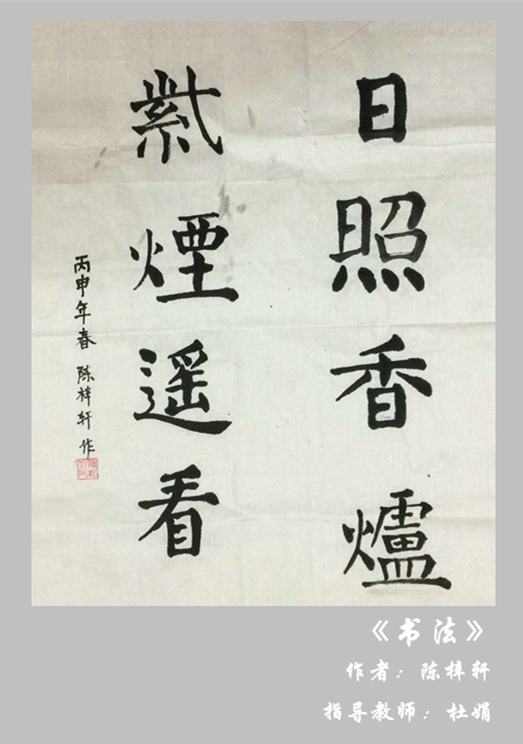 日照香爐
紫煙遥看
丙申年春 陈梓轩 作
《书法》
作者：陈梓轩
指导教师：杜娟